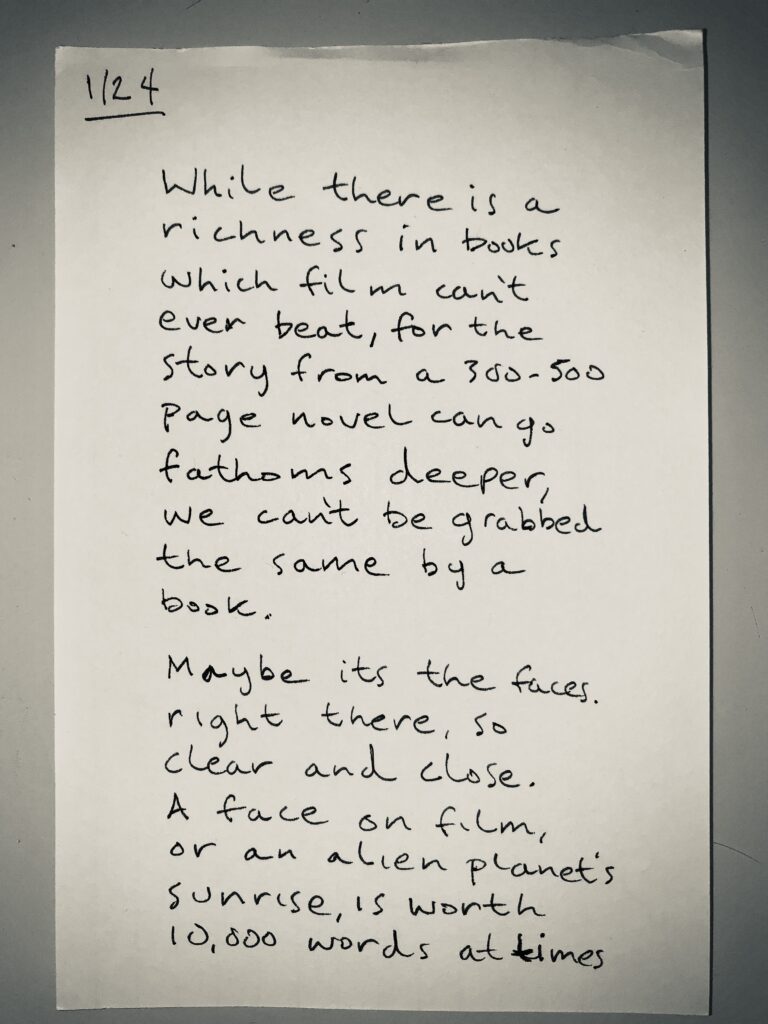 1/24
While there is a
richness in books
which film can't
ever beat, for the
story from a 300-500
page novel can go
fathoms deeper,
we can't be grabbed
the same by a
book.
Maybe its the faces.
right there, so
clear and close.
A face on film,
or an alien planet's
sunrise, is worth
10,000 words at times